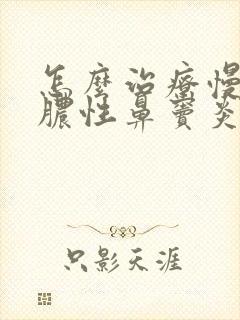 怎麼治療慢
膿性鼻竇炎
只影天涯